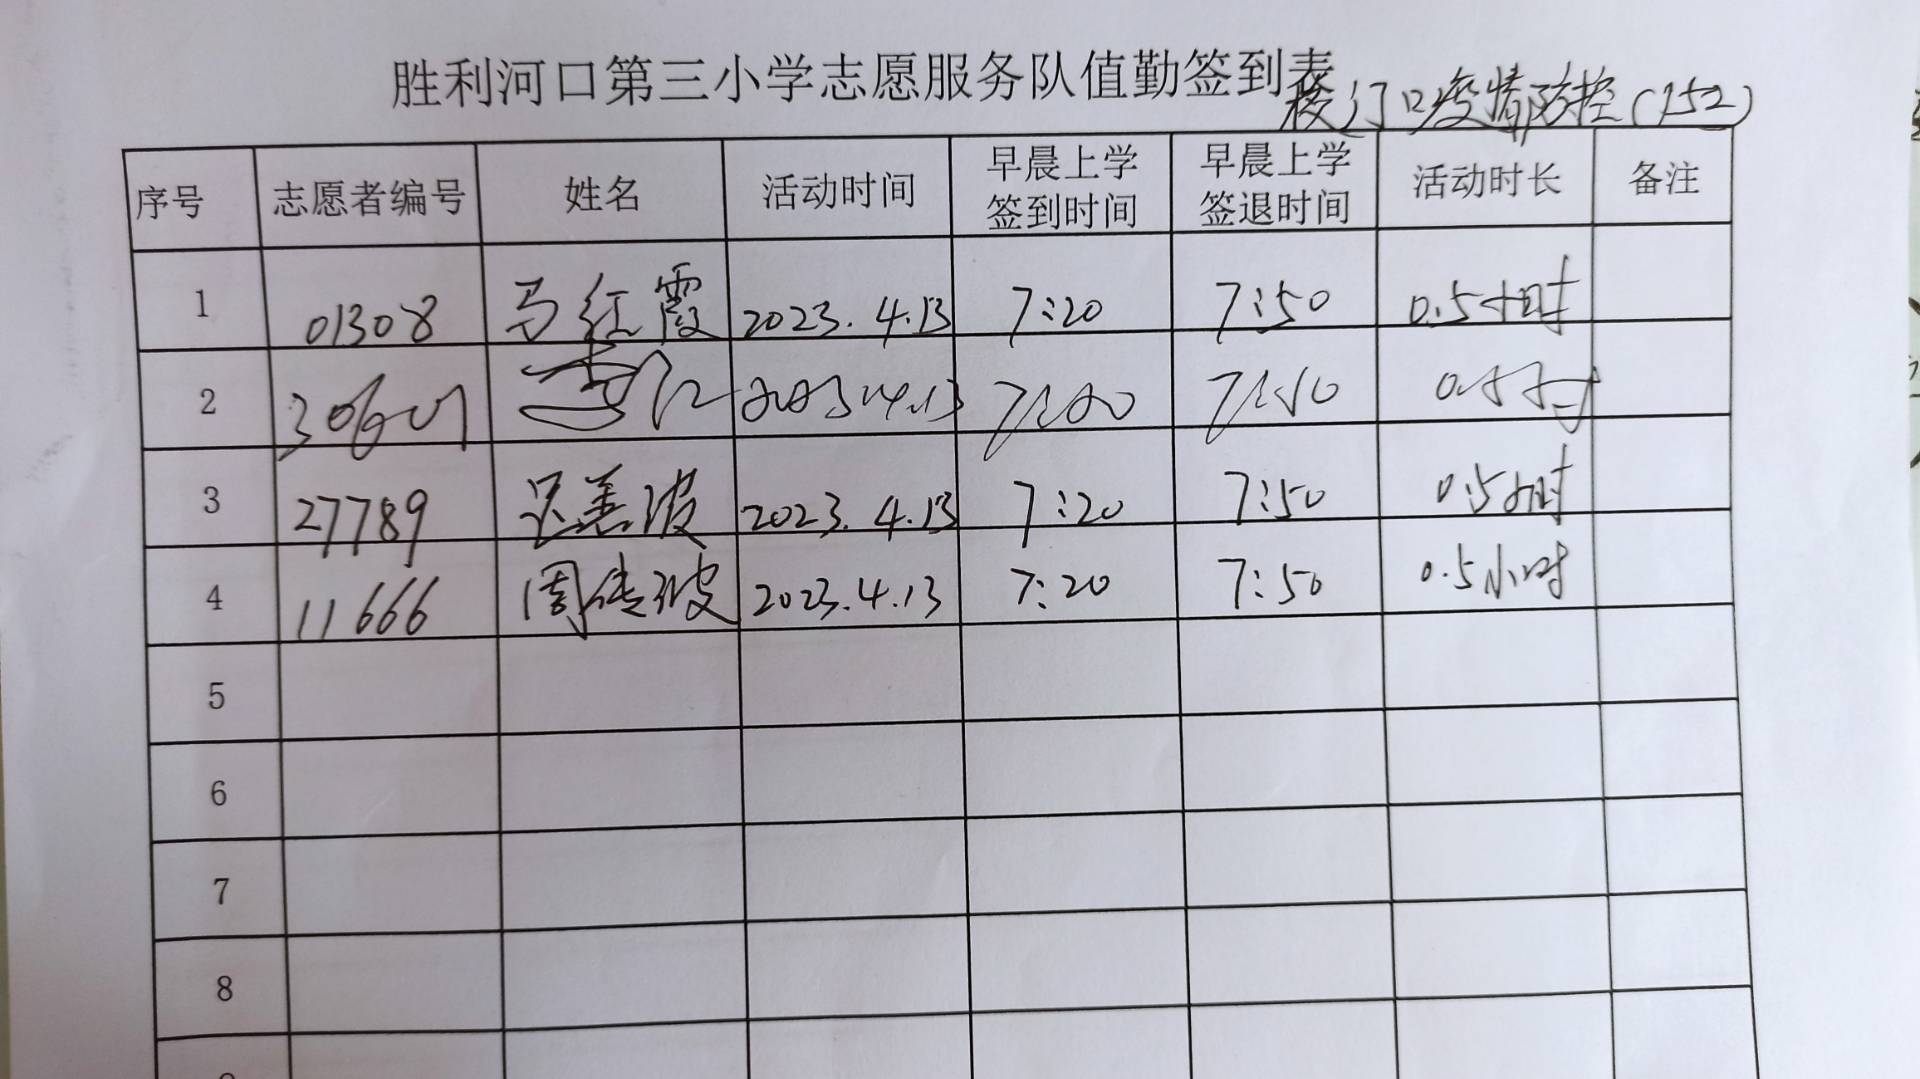 胜利河口第三小学志愿服务队值勤签到表
校门口疫情防控(152)
序号 志愿者编号 姓名 活动时间 早晨上学签到时间 早晨上学签退时间 活动时长 备注
1 01308 马红霞 2023.4.13 7:20 7:50 0.5小时
2 李 2023.4.13 7:20 7:50 0.5小时
3 27789 善波 2023.4.13 7:20 7:50 0.5小时
4 11666 周传波 2023.4.13 7:20 7:50 0.5小时
5
6
7
8